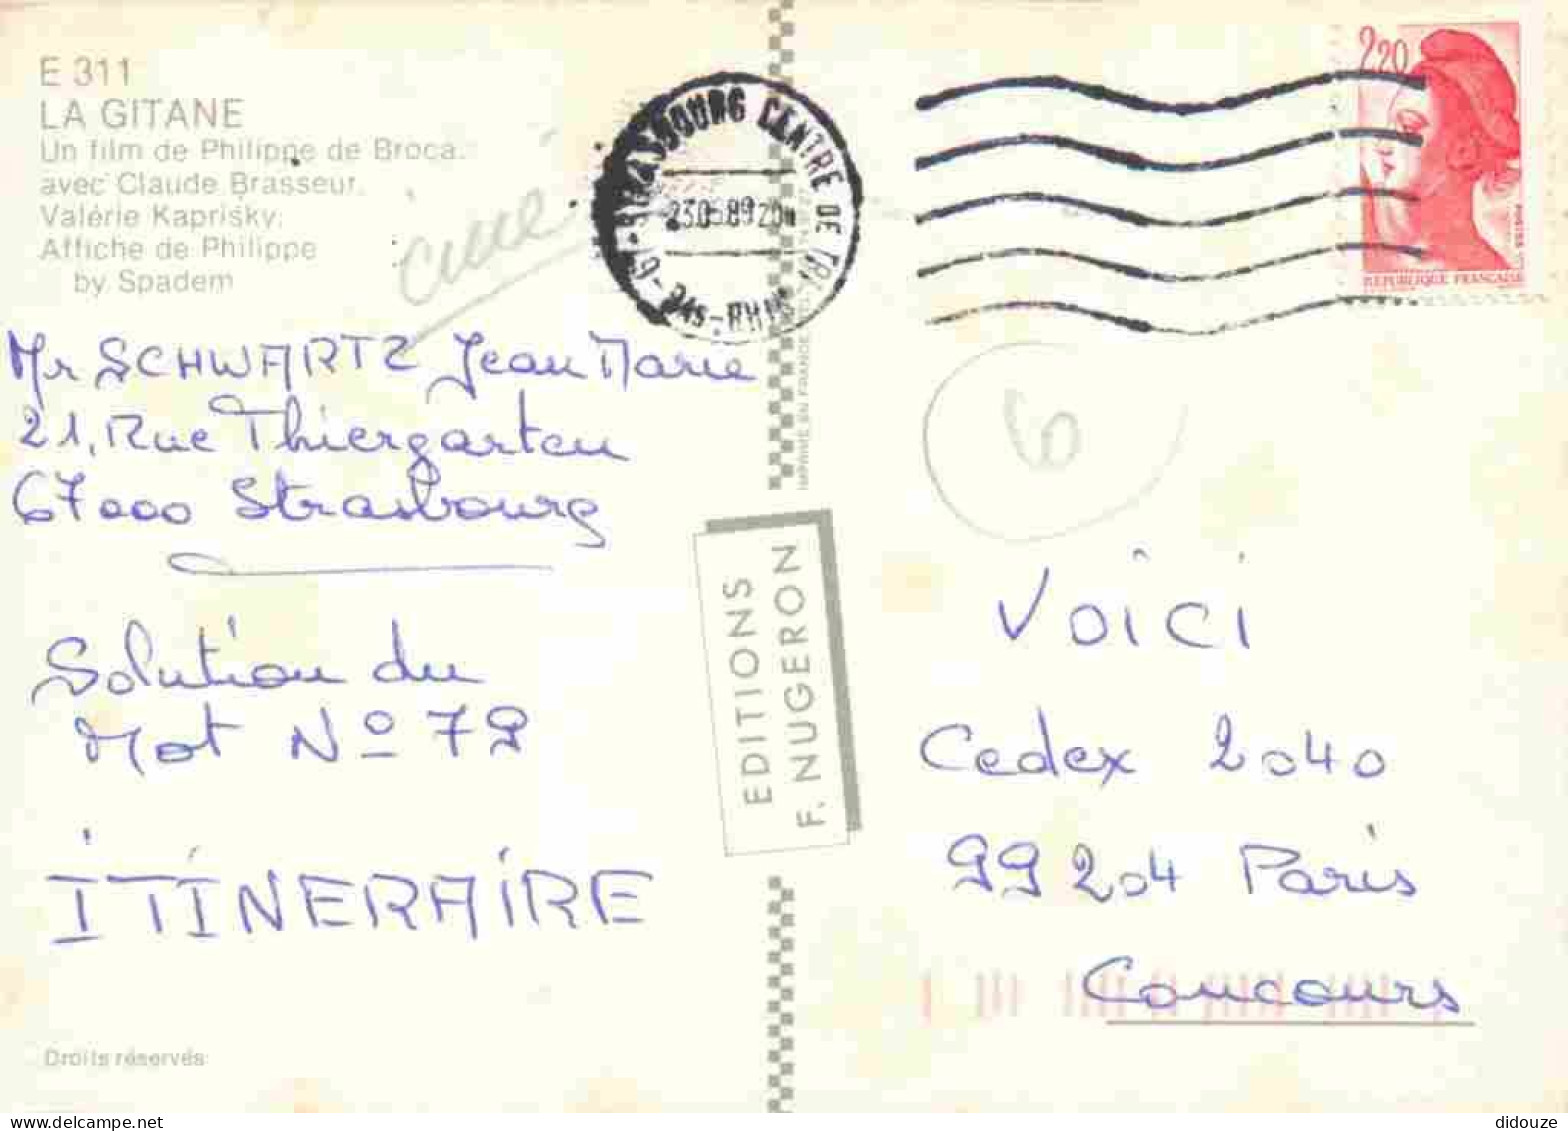 E 311
LA GITANE
Un film de Philippe de Broca.
avec Claude Brasseur.
Valérie Kaprisky.
Affiche de Philippe
by Spadem
ciné
67-STRASBOURG CENTRE DE TRI
BAS-RHIN
2,20
REPUBLIQUE FRANÇAISE
Mr SCHWARTZ Jean Marie
21, Rue Thiergarten
67000 Strasbourg
Solution du
Mot Nº 79
ITINERAIRE
Droits réservés
IMPRIMÉ EN FRANCE
EDITIONS
F. NUGERON
6
VOÎCI
Cedex 2040
99204 Paris
Concours
didouze